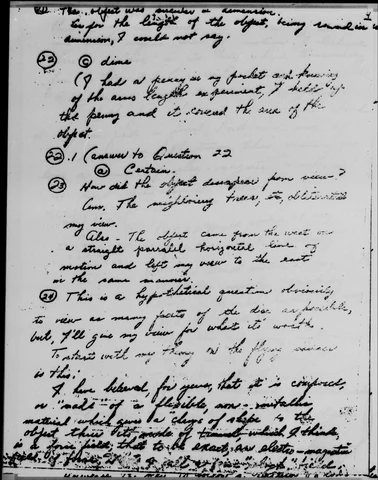 The object was circular in dimension.
As for the length of the object, being round in
dimension, I could not say.
(22) (c) dime
(I had a penny in my pocket and knowing
of the arms length experiment, I held up
the penny and it covered the area of the
object.
(22).1 (answer to Question 22
(a) Certain
(23) How did the object disappear from view?
Ans. The neighboring trees, etc, obliterated
my view.
Also - The object came from the west on
a straight parallel horizontal line of
motion and left my view to the east
in the same manner.
(24) This is a hypothetical question obviously,
to view as many facets of the disc as possible,
but, I'll give my view for what it's worth.
To start with my theory on the flying saucer
is this:
I have believed, for years, that it is composed,
or 'made' of a flexible, non-metallic
material which gives a change of shape to the
object thru its mode of travel, which I think,
is a force field, that to be exact, an electro-magnetic